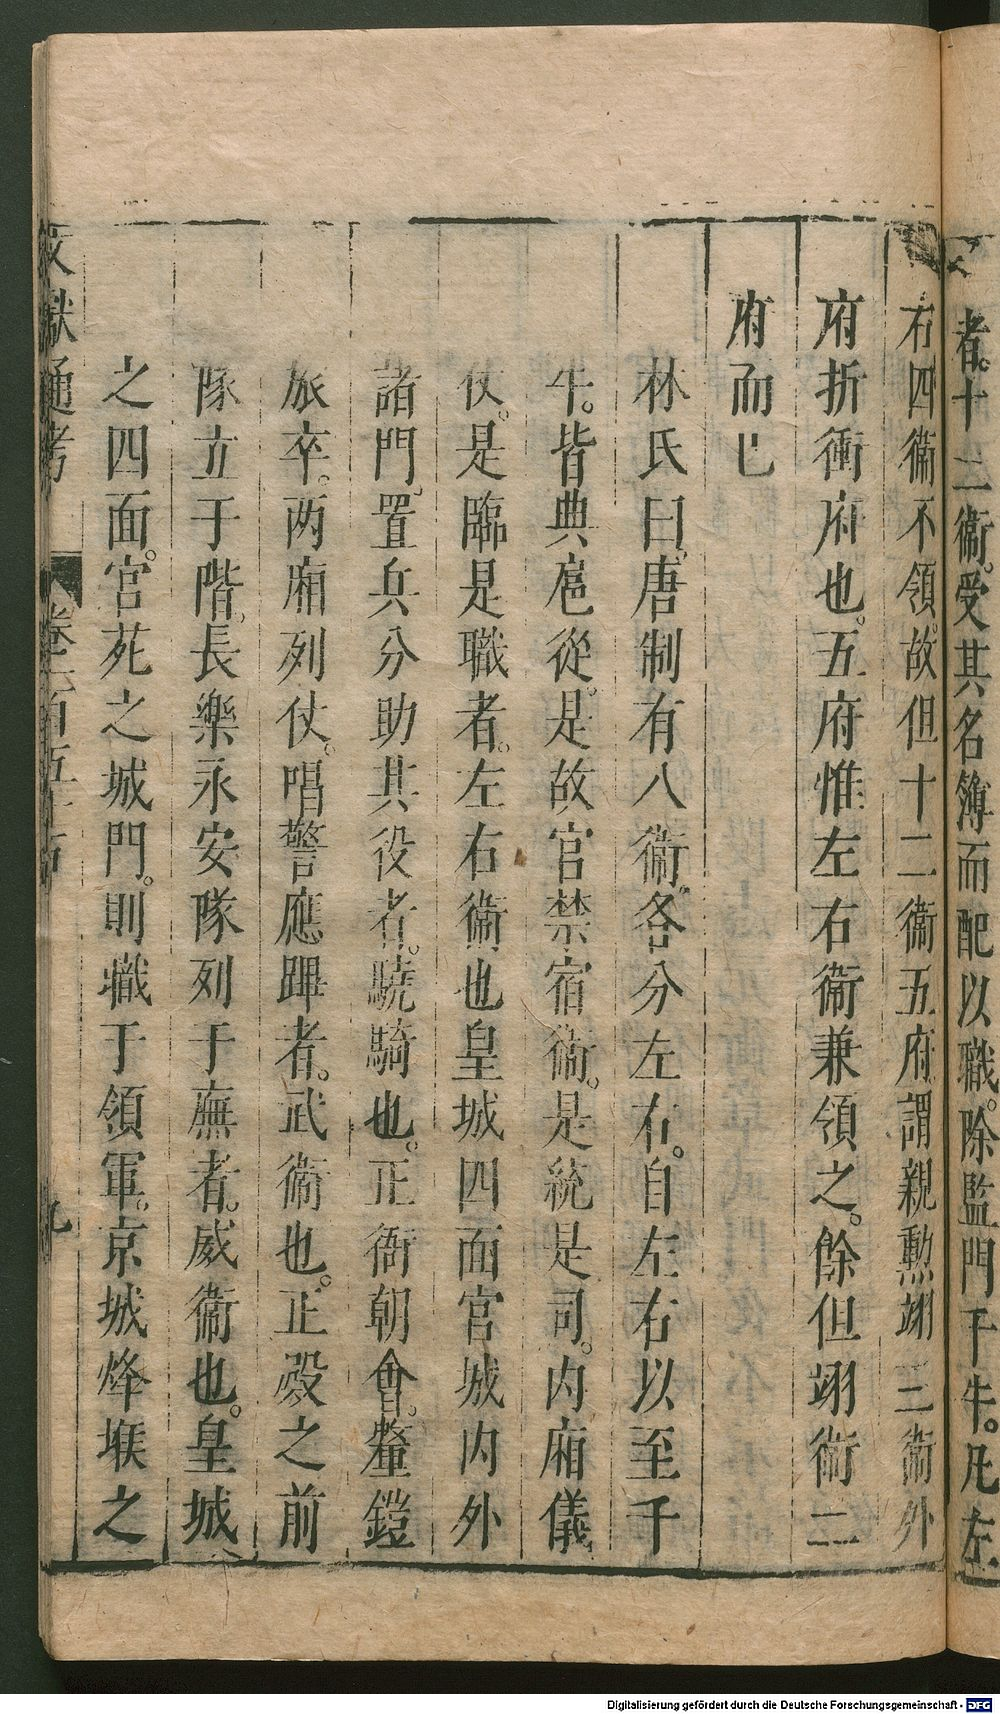 者。十二衞。受其名簿而配以職。除監門千牛。凡左
右四衞不領。故但十二衞五府。謂親勲翊三衞外
府折衝府也。五府惟左右衞兼領之。餘但翊衞二
府而已
林氏曰。唐制有八衞。各分左右。自左右以至千
牛。皆典扈從。是故官禁宿衞。是統是司。内廂儀
仗。是臨是職者。左右衞也皇城四面宮城内外
諸門。置兵分助其役者。驍騎也。正衙朝會。釐鎧
旅卒。两廂列仗。唱警應蹕者。武衞也。正殿之前
隊立于階。長樂永安隊列于廡者。威衞也。皇城
之四面。宮苑之城門。則職于領軍。京城烽堠之
文獻通考
卷一百五十一
九
Digitalisierung gefördert durch die Deutsche Forschungsgemeinschaft - DFG